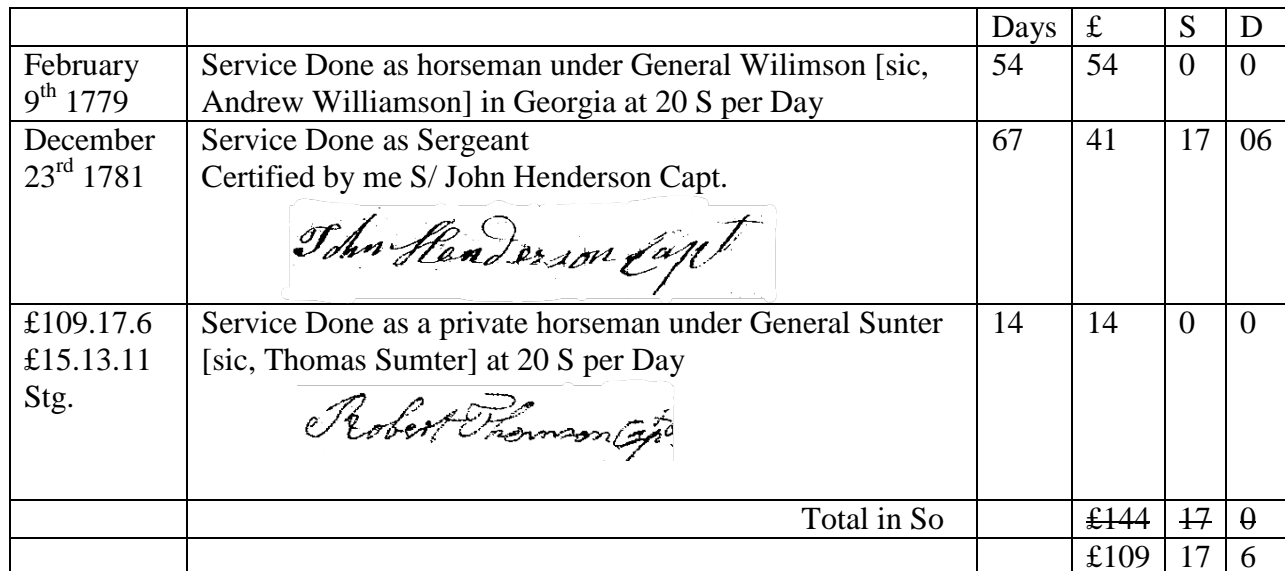 Days £ S D
February 9th 1779 Service Done as horseman under General Wilimson [sic, Andrew Williamson] in Georgia at 20 S per Day 54 54 0 0
December 23rd 1781 Service Done as Sergeant
Certified by me S/ John Henderson Capt. 67 41 17 06
John Henderson Capt
£109.17.6
£15.13.11
Stg. Service Done as a private horseman under General Sunter [sic, Thomas Sumter] at 20 S per Day 14 14 0 0
Robert Thomson Capt
Total in So £144 17 0
£109 17 6